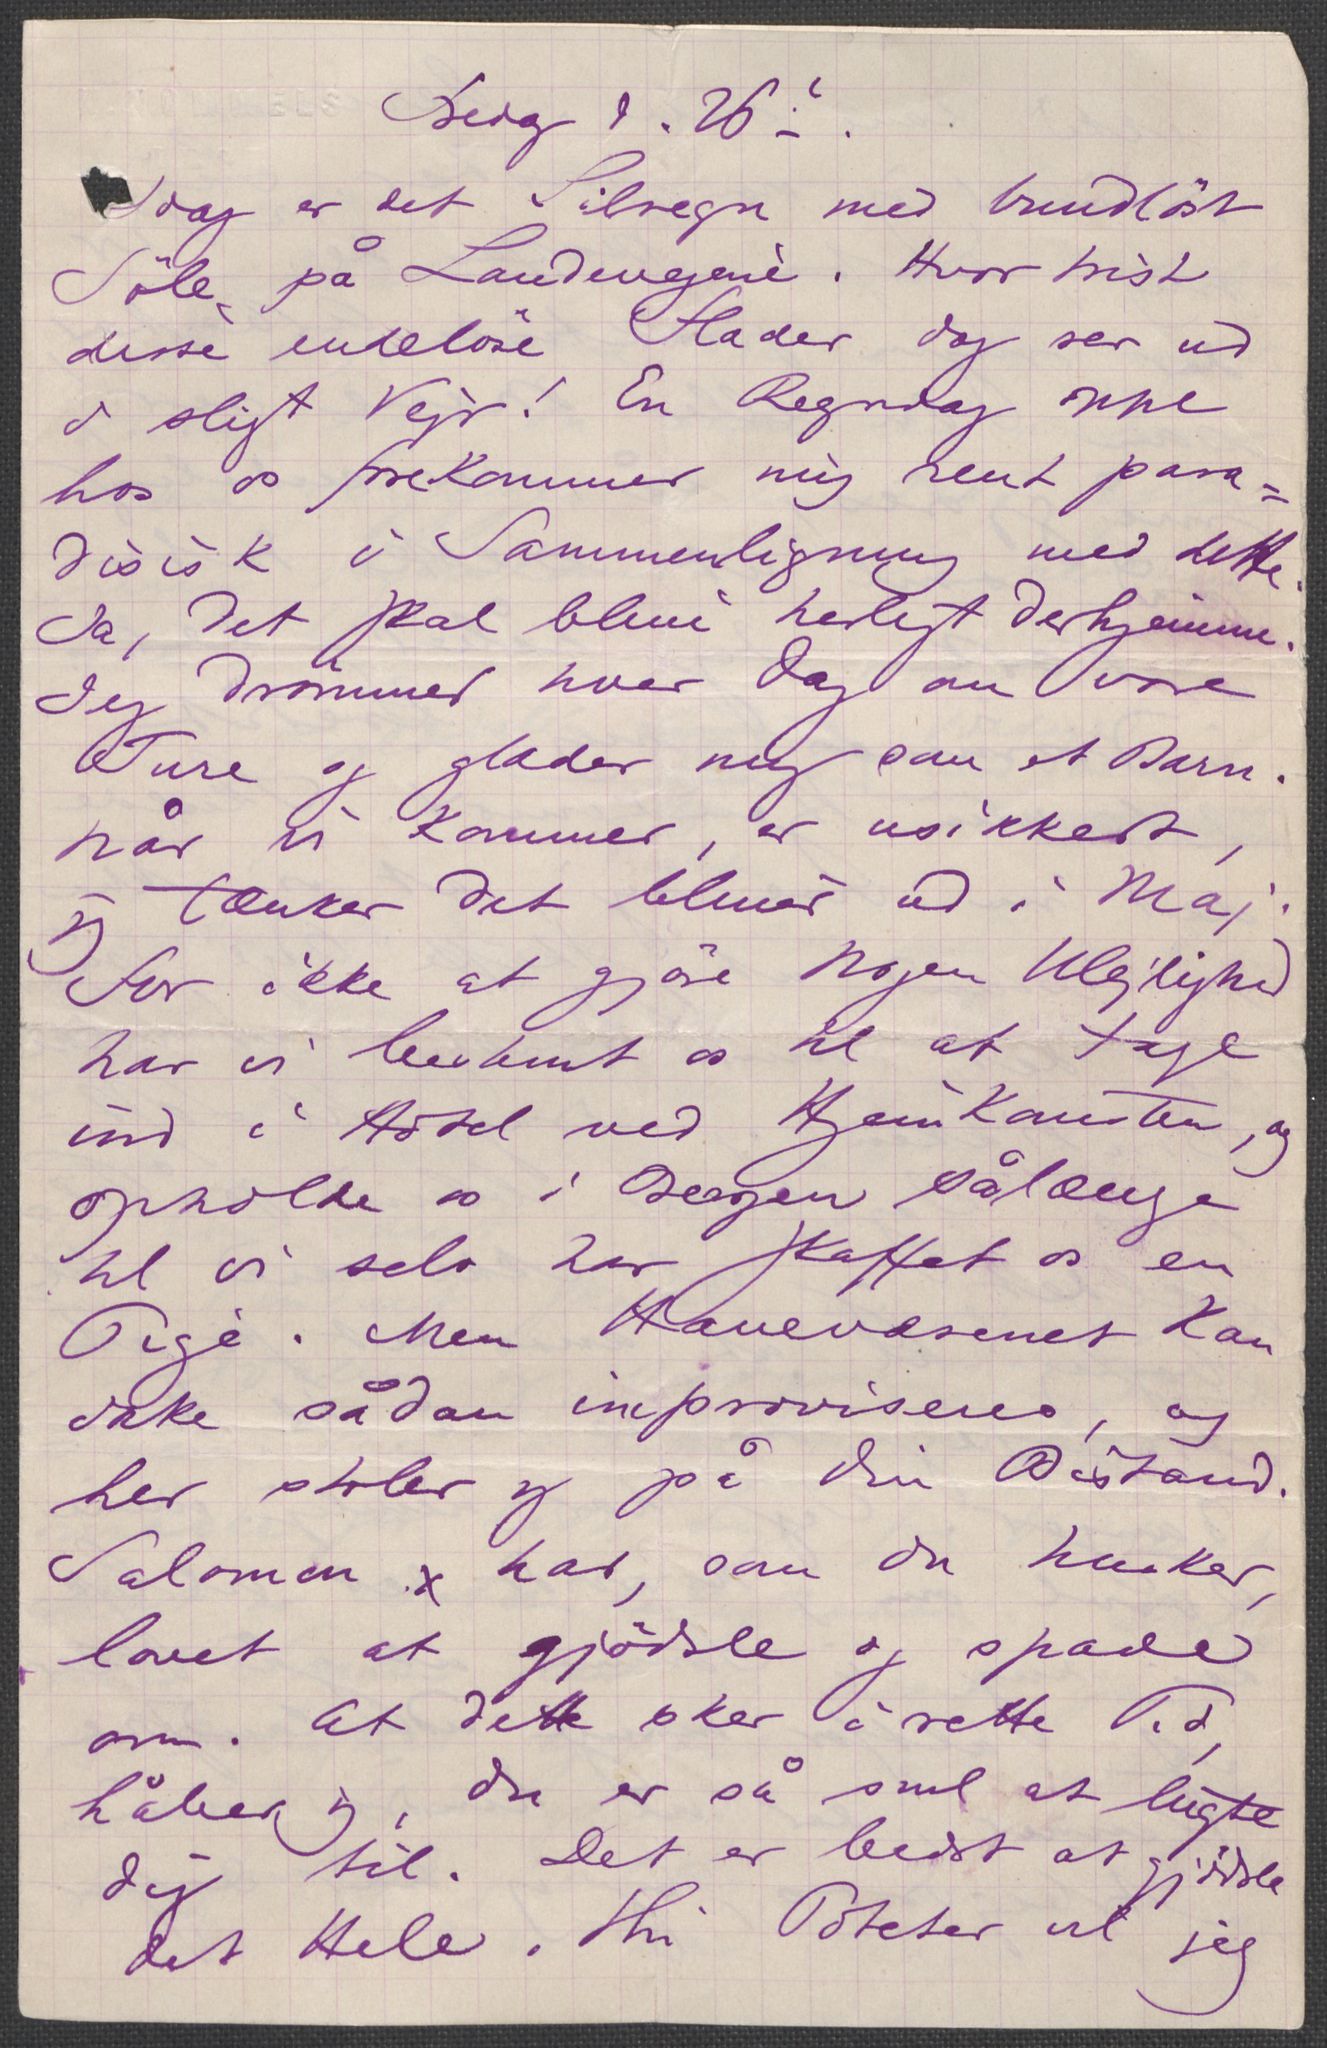 Fredag d. 26de.
Idag er det Silregn med bundlöst
Söle på Landevejene. Hvor trist
disse endelöse Flader dog ser ud
i sligt Vejr! En Regndag oppe
hos os forekommer mig rent para=
disisk i Sammenligning med dette.
Ja, det skal blive herligt derhjemme.
Jeg drömmer hver Dag om vore
Ture og glæder mig som et Barn.
når vi kommer, er usikkert,
jeg tænker det bliver ud i Maj.
For ikke at gjöre nogen Ulejlighed
har vi bestemt os til at tage
ind i Hotel ved Hjemkomsten, og
opholde os i Bergen sålænge
til vi selv har skaffet os en
Pige. Men Havevæsenet kan
ikke sådan improviseres, og
her stoler jeg på din Bistand.
Salomon x har, som du husker,
lovet at gjödsle og spade
om. At dette sker i rette Tid,
håber jeg, du er så snil at liste
dig til. Det er bedst at gjödsle
det Hele. Thi Poteter vil jeg